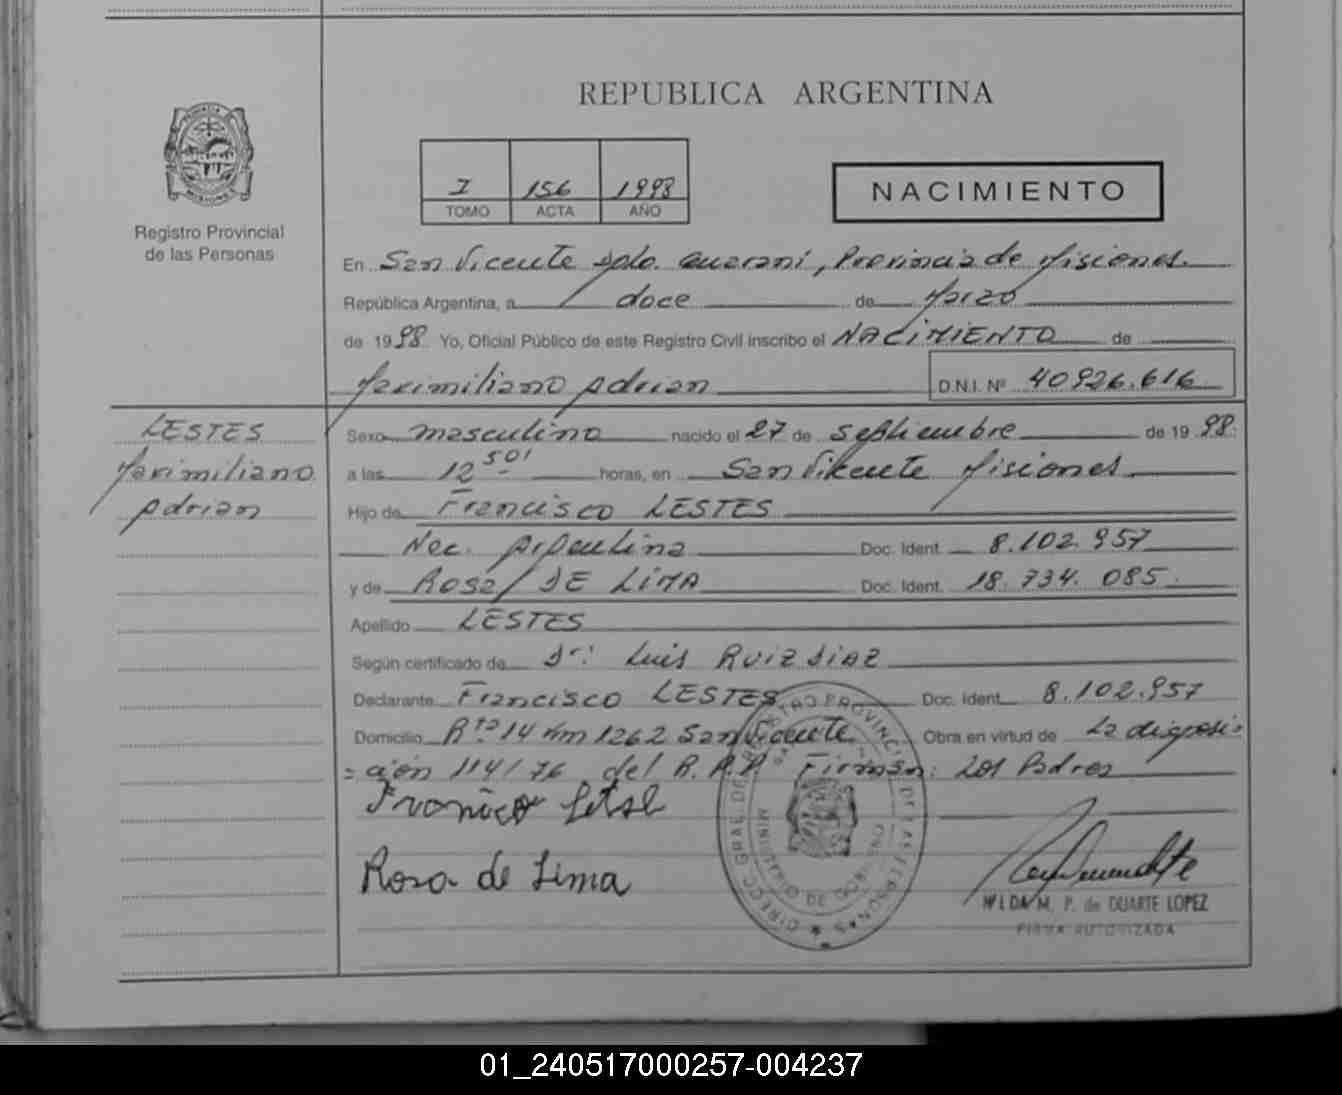 REPUBLICA ARGENTINA
I 156 1998
TOMO ACTA AÑO
NACIMIENTO
Registro Provincial
de las Personas
En San Vicente Dpto. Guaraní, Provincia de Misiones.
República Argentina, a doce de Marzo
de 1998. Yo, Oficial Público de este Registro Civil inscribo el NACIMIENTO de
Maximiliano Adrian D.N.I. Nº 40926.616
LESTES
Maximiliano
Adrian
Sexo masculino nacido el 27 de septiembre de 1998.
a las 12 50' horas, en San Vicente Misiones
Hijo de Francisco LESTES
Nac. Argentina Doc. Ident. 8.102.957
y de Rosa DE LIMA Doc. Ident. 18.734.085.
Apellido LESTES
Según certificado de Dr: Luis Ruiz Diaz
Declarante Francisco LESTES Doc. Ident. 8.102.957
Domicilio Rta 14 Km 1262 San Vicente Obra en virtud de La disposi-
=ción 114/76 del R.P.P. Firman: Los Padres
Rosa de Lima
M. P. de DUARTE LOPEZ
FIRMA AUTORIZADA
DIRECC. GRAL. DE REGISTRO PROVINCIAL DE LAS PERSONAS
MINISTERIO DE GOBIERNO
01_240517000257-004237